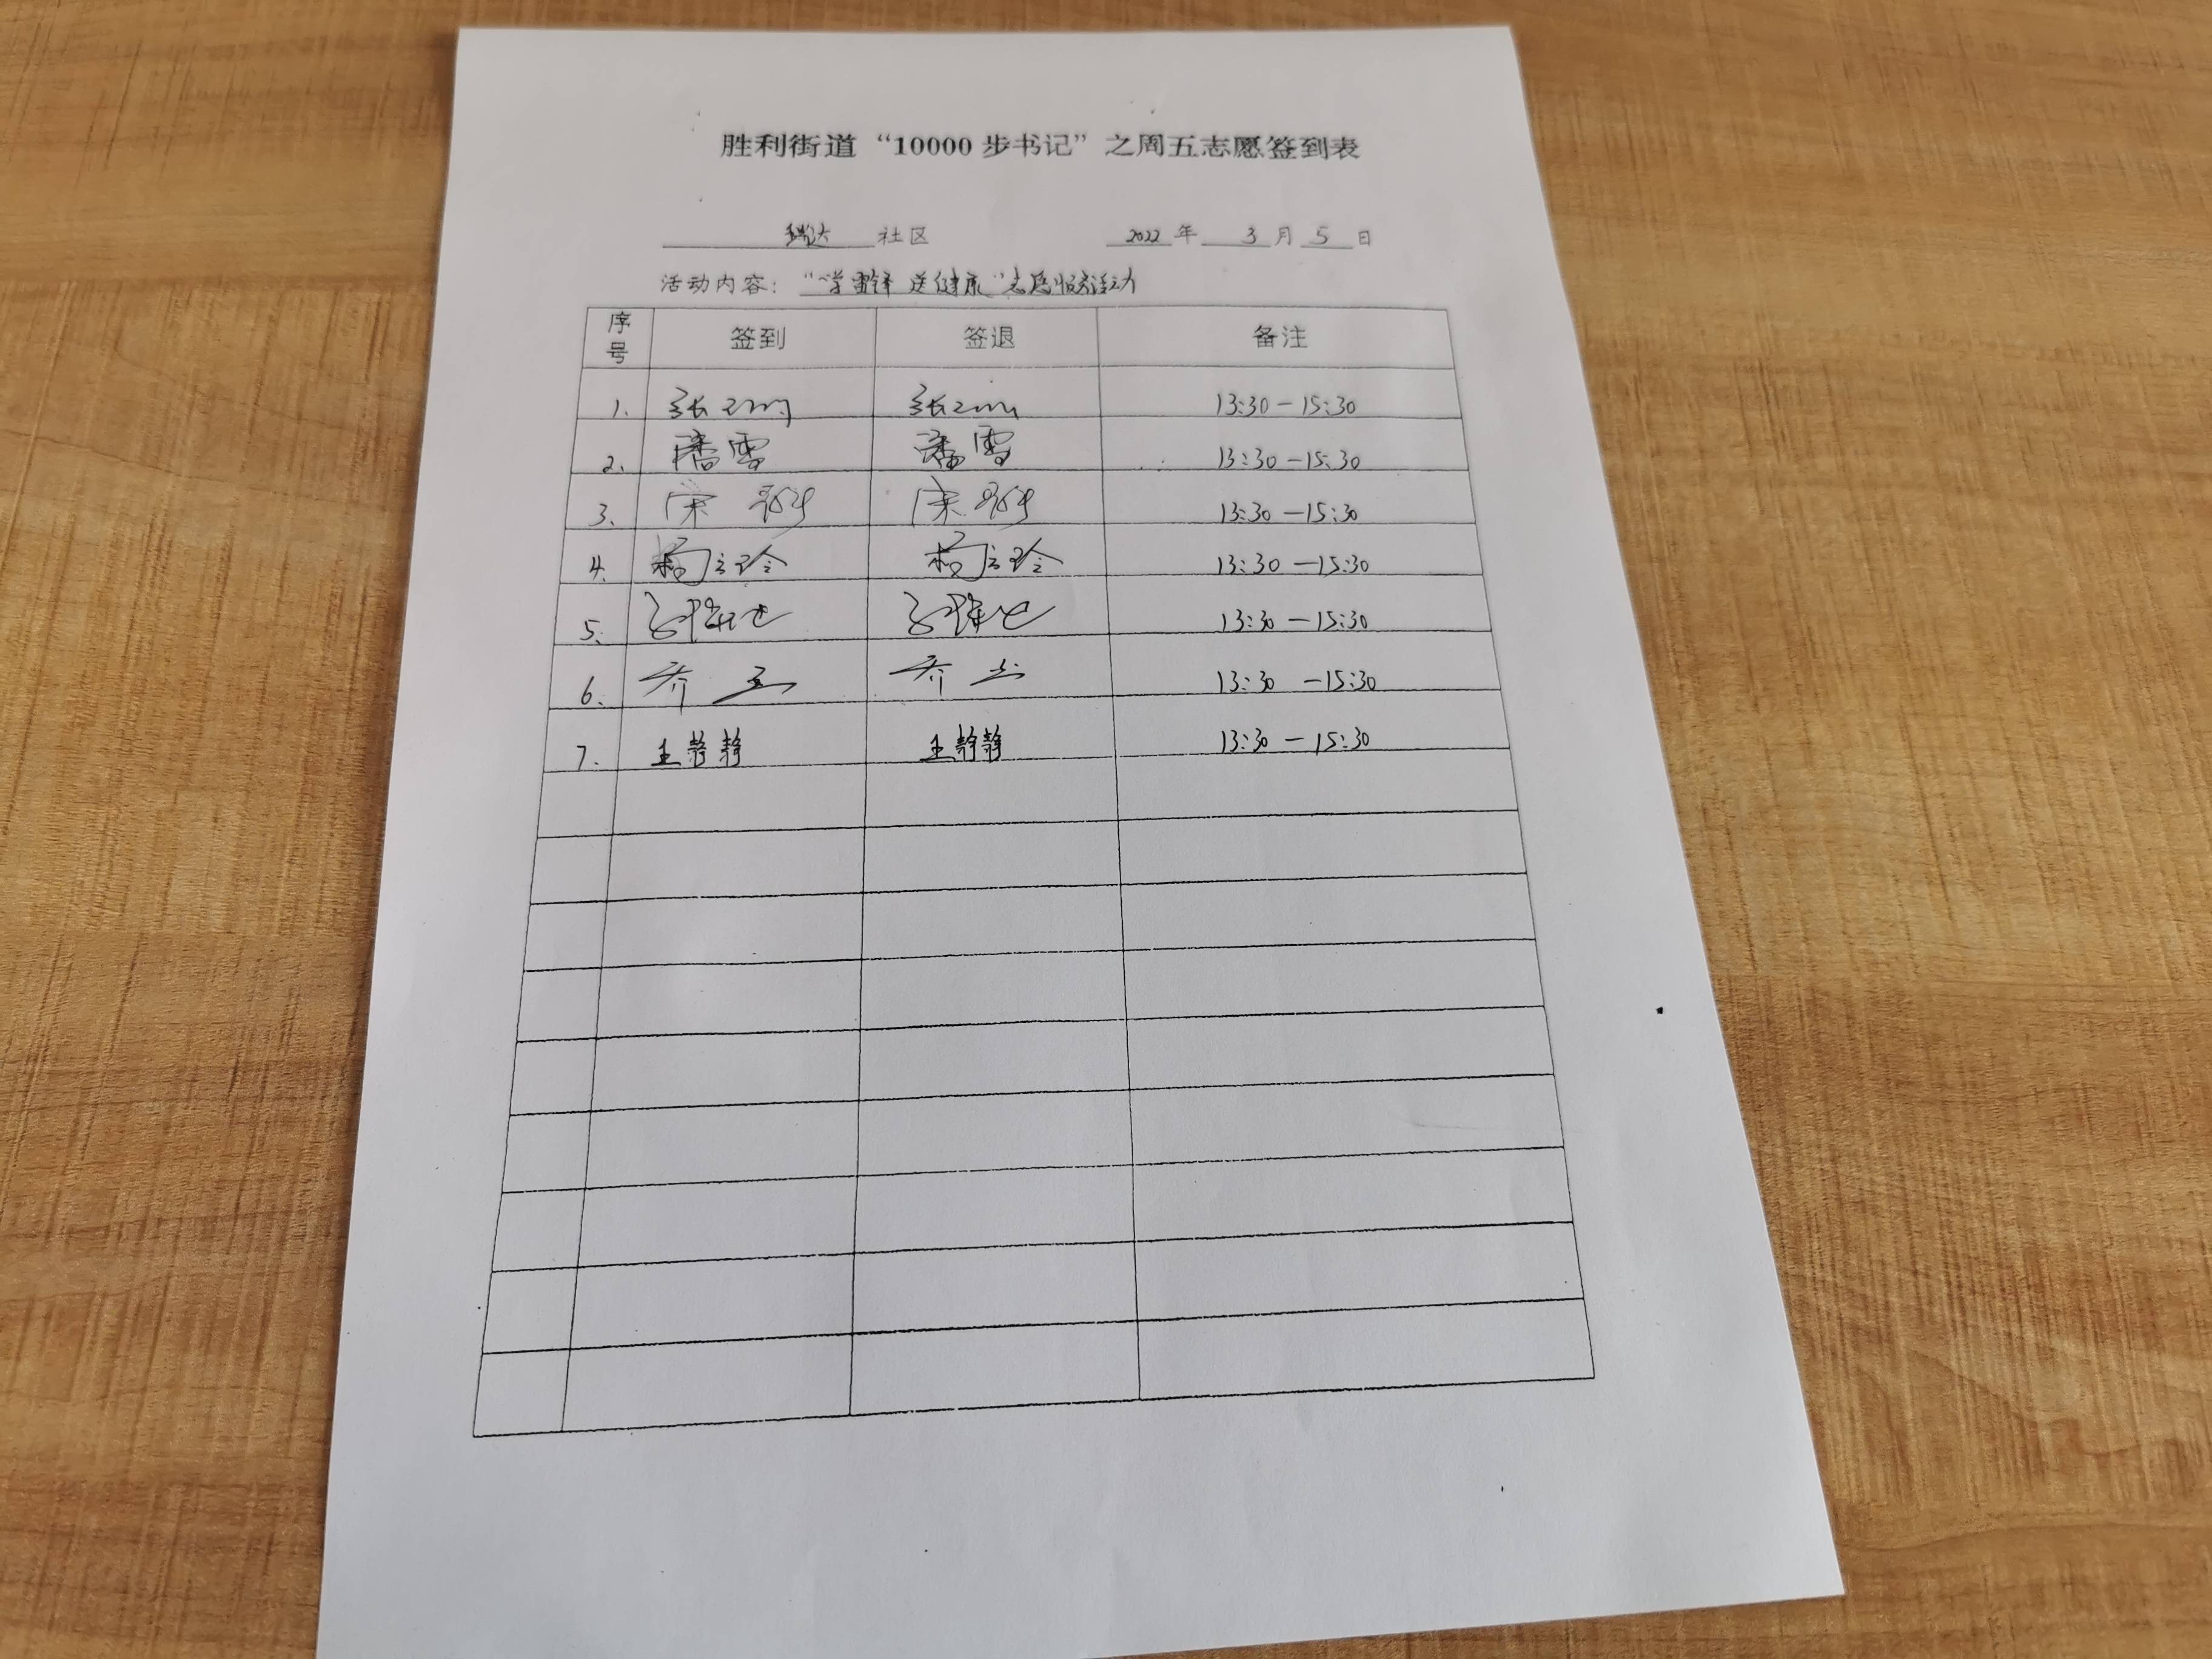 胜利街道“10000步书记”之周五志愿签到表
瑞达 社区 2022 年 3 月 5 日
活动内容：“学雷锋 送健康”志愿服务活动
序号 签到 签退 备注
1. 张 张 13:30-15:30
2. 潘雪 潘雪 13:30-15:30
3. 宋 宋 13:30-15:30
4. 杨立玲 杨立玲 13:30-15:30
5. 13:30-15:30
6. 乔 乔 13:30-15:30
7. 王静静 王静静 13:30-15:30